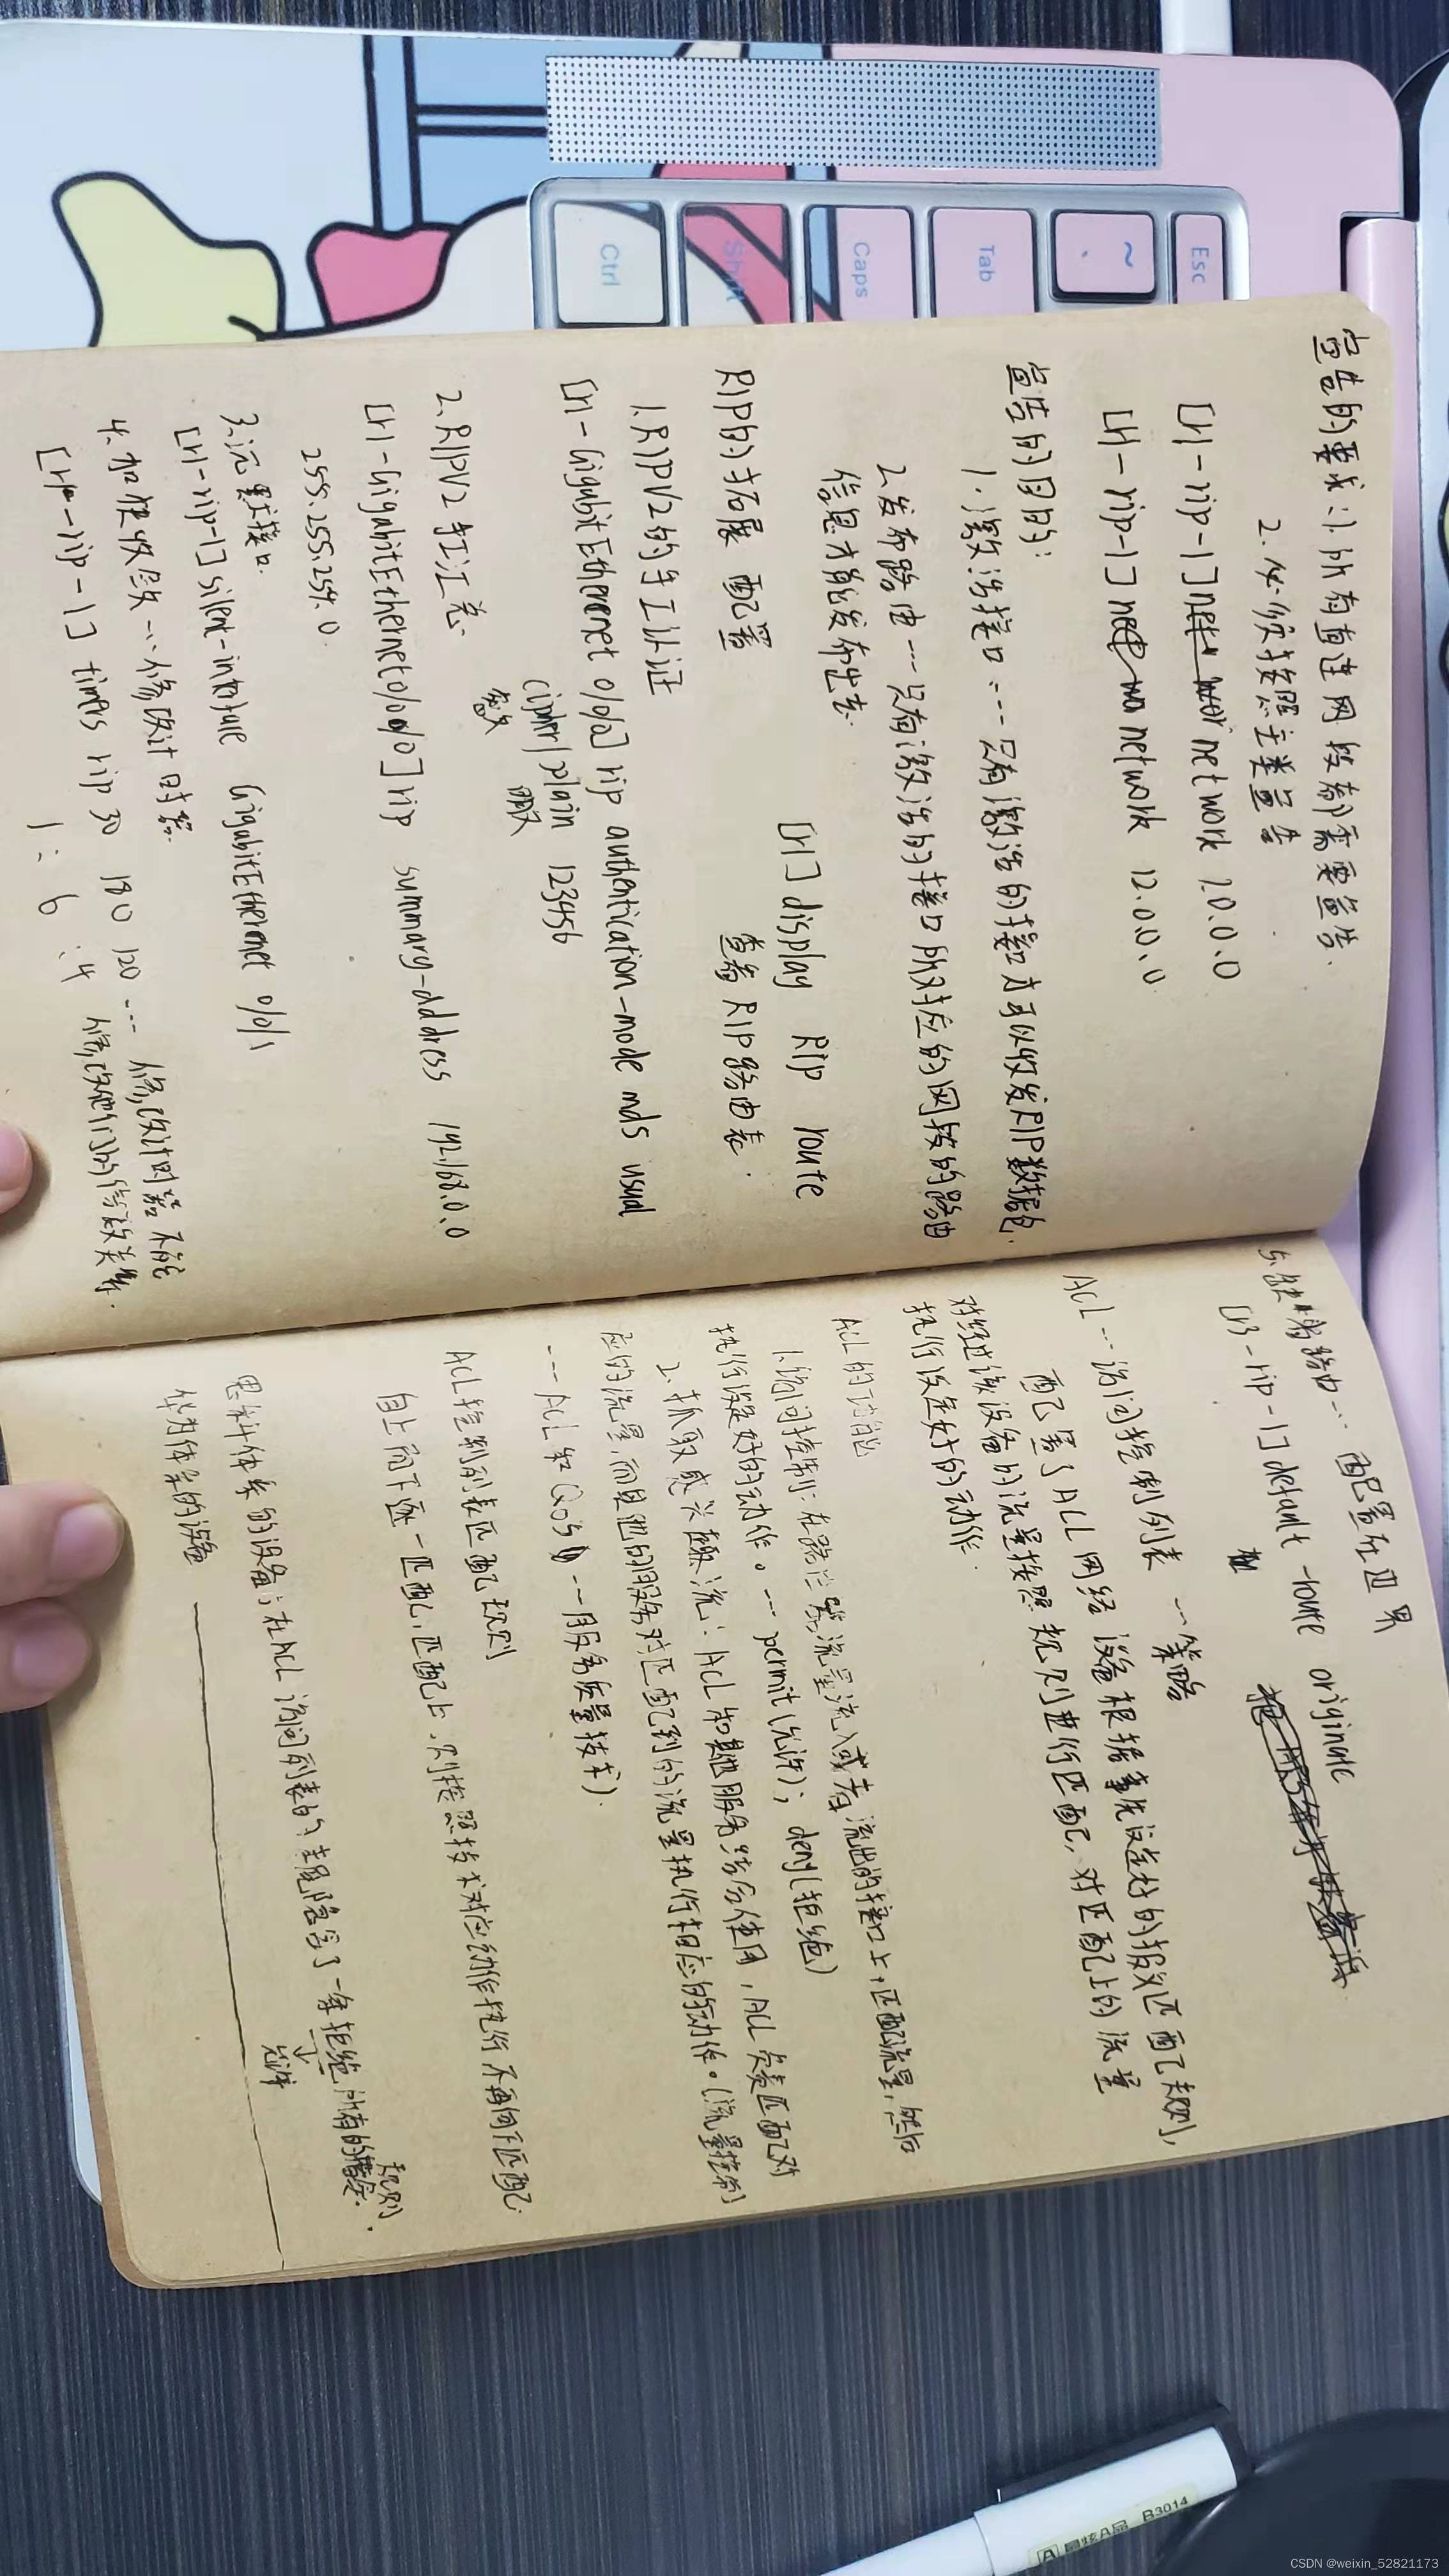 Esc
~
、
Tab
Caps
Shift
Ctrl
宣告的要求:1.所有直连网段都需要宣告.
2.必须按照主类宣告
[r1-rip-1]network 1.0.0.0
[r1-rip-1]network 12.0.0.0
宣告的目的:
1.激活接口----只有激活的接口才可以收发RIP数据包.
2.发布路由---只有激活的接口所对应的网段的路由
信息才能发布出去.
[r1]display Rip route
查看RIP路由表.
RIP的拓展配置
1.RIPV2的手工认证
[r1-GigabitEtherenet 0/0/0]rip authentication-mode md5 usual
cipher/plain 123456
密文 明文
2.RIPV2手工汇总.
[r1-GigabitEthernet0/0/0]rip summary-address 192.168.0.0
255.255.254.0
3.沉默接口.
[r1-rip-1]silent-interface GigabitEtherenet 0/0/1
4.加快收敛--修改计时器.
[r1-rip-1] timers rip 30 180 120 --- 修改计时器不能
1:6:4 修改他们的倍数关系.
5.缺省路由--- 配置在边界
[r3-rip-1]default-route originate
ACL---访问控制列表 --策略
配置了ACL网络设备根据事先设定好的报文匹配规则,
对经过该设备的流量按照规则进行匹配,对匹配上的流量
执行设定好的动作.
ACL的功能
1.访问控制:在路由器流量流入或者流出的接口上,匹配流量,然后
执行设定好的动作。---permit(允许);deny(拒绝)
2.抓取感兴趣流:ACL和其他服务结合使用,ACL负责匹配对
应的流量,而其他的服务对匹配到的流量执行相应的动作。(流量控制
---ACL和QoS---服务质量技术).
ACL控制列表匹配规则
自上而下逐一匹配,匹配上,则按照技术对应动作执行不再向下匹配.
思科体系的设备:在ACL访问列表的末尾隐含了一条拒绝所有的规则.
华为体系的设备 ———————— 允许
B3014
CSDN @weixin_52821173